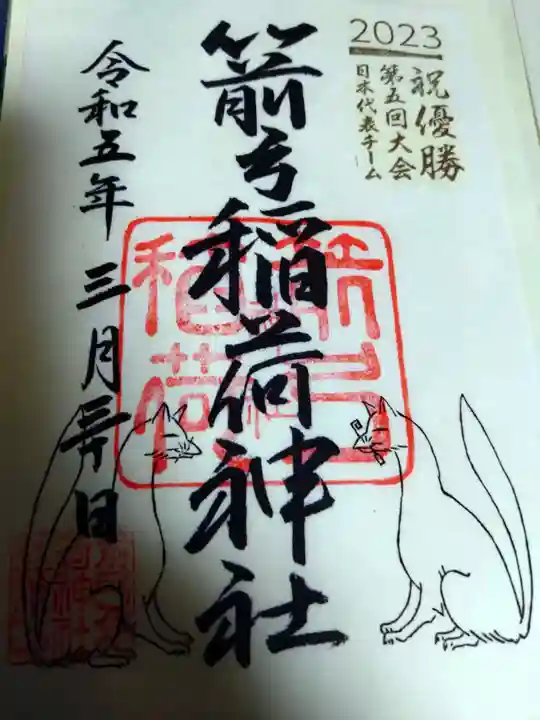 2023
祝優勝
第五回大会
日本代表チーム
箭弓稲荷神社
令和五年三月日